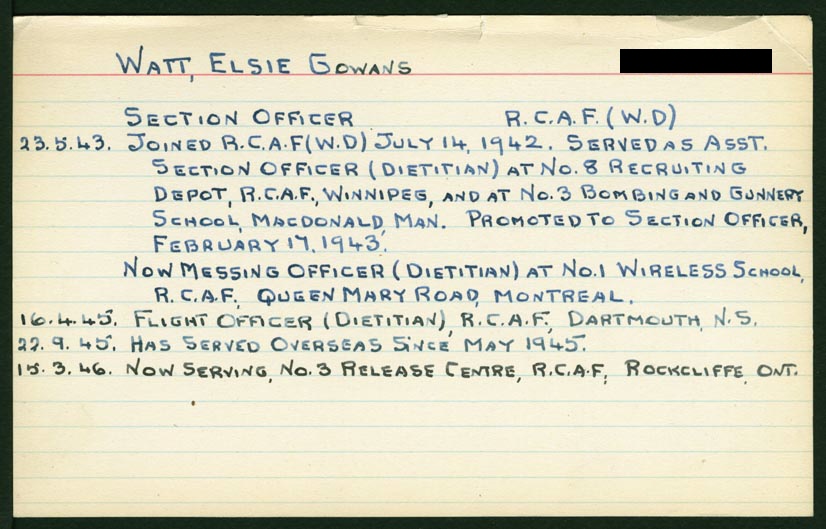 WATT, ELSIE GOWANS
SECTION OFFICER R.C.A.F. (W.D)
23.5.43. JOINED R.C.A.F (W.D) JULY 14, 1942. SERVED AS ASST.
SECTION OFFICER (DIETITIAN) AT NO. 8 RECRUITING
DEPOT, R.C.A.F., WINNIPEG, AND AT NO. 3 BOMBING AND GUNNERY
SCHOOL, MACDONALD, MAN. PROMOTED TO SECTION OFFICER,
FEBRUARY 17, 1943.
NOW MESSING OFFICER (DIETITIAN) AT NO. 1 WIRELESS SCHOOL,
R.C.A.F., QUEEN MARY ROAD, MONTREAL.
16.4.45. FLIGHT OFFICER (DIETITIAN), R.C.A.F., DARTMOUTH, N.S.
22.9.45. HAS SERVED OVERSEAS SINCE MAY 1945.
15.3.46. NOW SERVING, NO. 3 RELEASE CENTRE, R.C.A.F., ROCKCLIFFE, ONT.